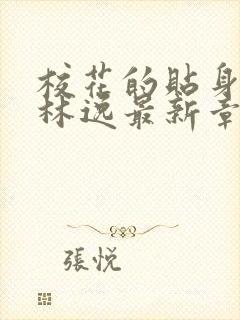 校花的贴身
林逸最新章
張悦